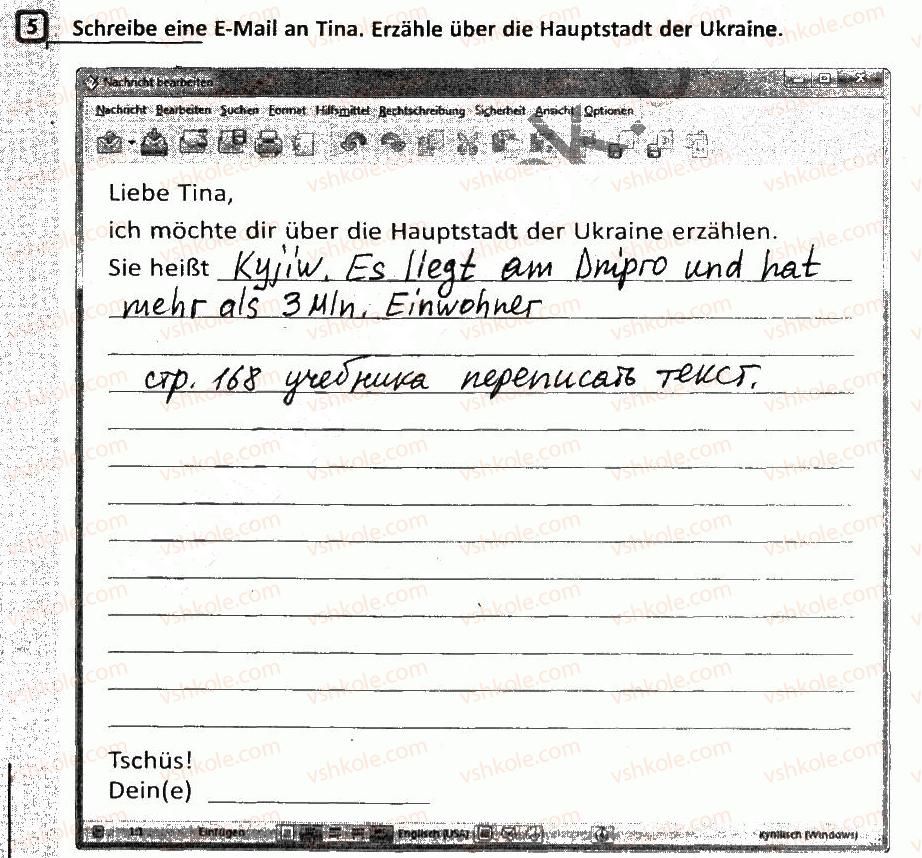 5 Schreibe eine E-Mail an Tina. Erzähle über die Hauptstadt der Ukraine.
Nachricht bearbeiten
Nachricht Bearbeiten Suchen Format Hilfsmittel Rechtschreibung Sicherheit Ansicht Optionen
Liebe Tina,
ich möchte dir über die Hauptstadt der Ukraine erzählen.
Sie heißt Kyjiw. Es liegt am Dnipro und hat
mehr als 3 Mln. Einwohner
стр. 168 учебника переписать текст.
Tschüs!
Dein(e)
1:1 Einfügen Englisch (USA) Kyrillisch (Windows)
vshkole.com